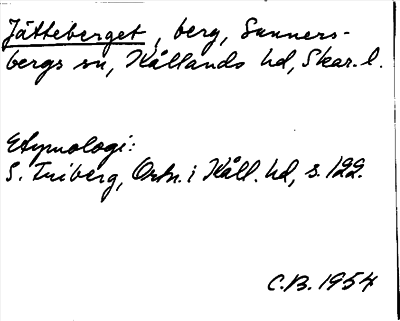 Jätteberget, berg, Sunners-
bergs sn, Kållands hd, Skar. l.
Etymologi:
S. Friberg, Ortn. i Kåll. hd, s. 122.
C.B. 1954